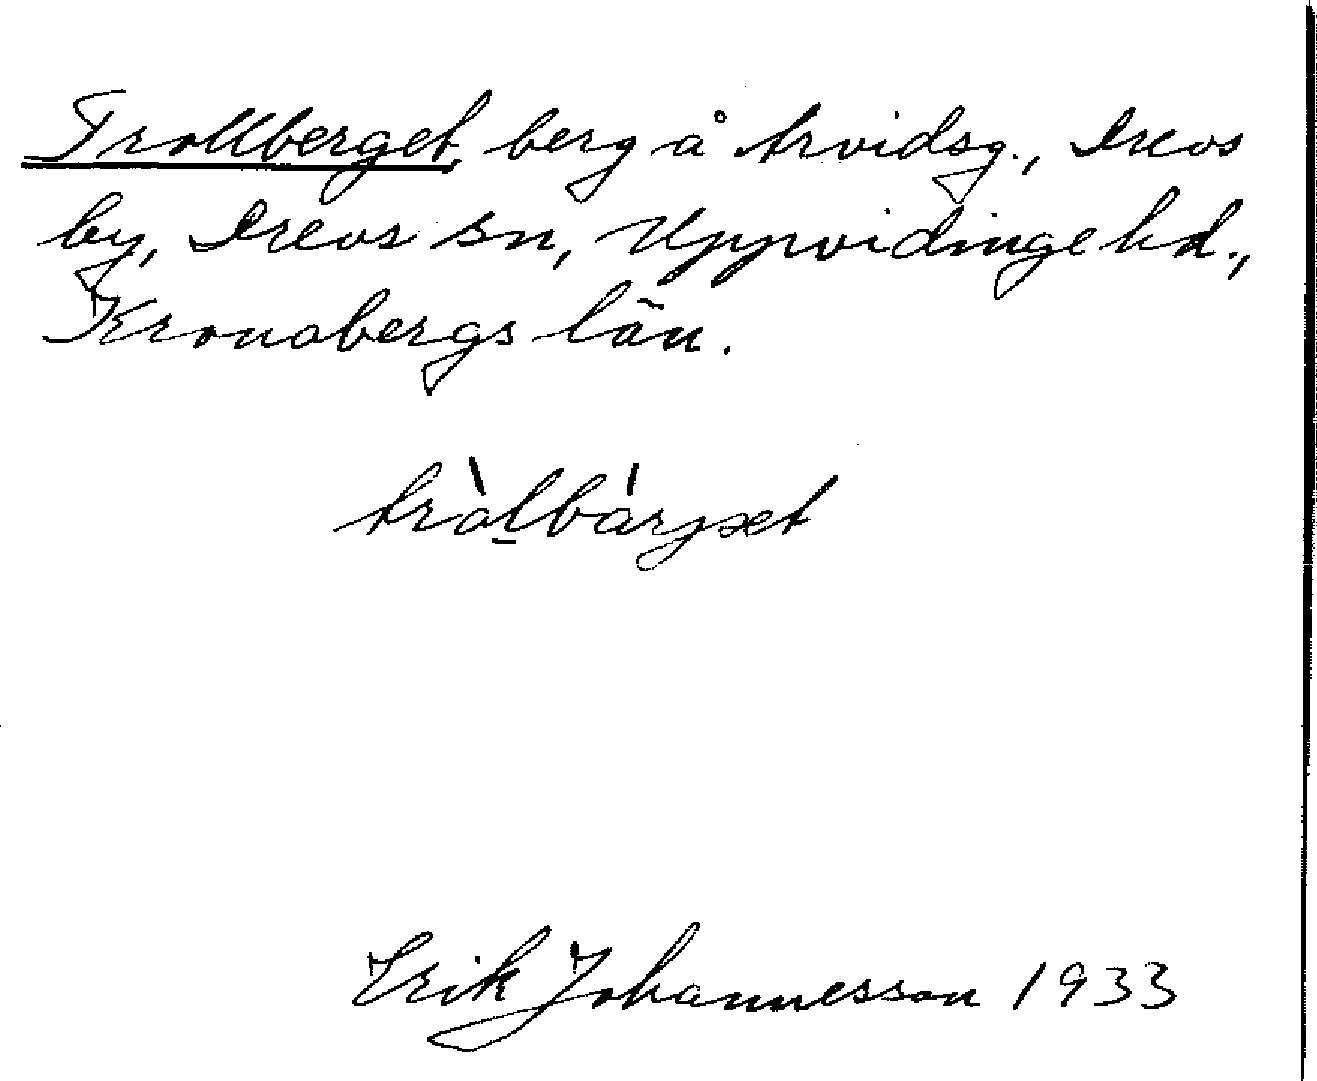 Trollberget, berg å Arvidsg., Drevs
by, Drevs sn, Uppvidinge hd.,
Kronobergs län.
Erik Johannesson 1933